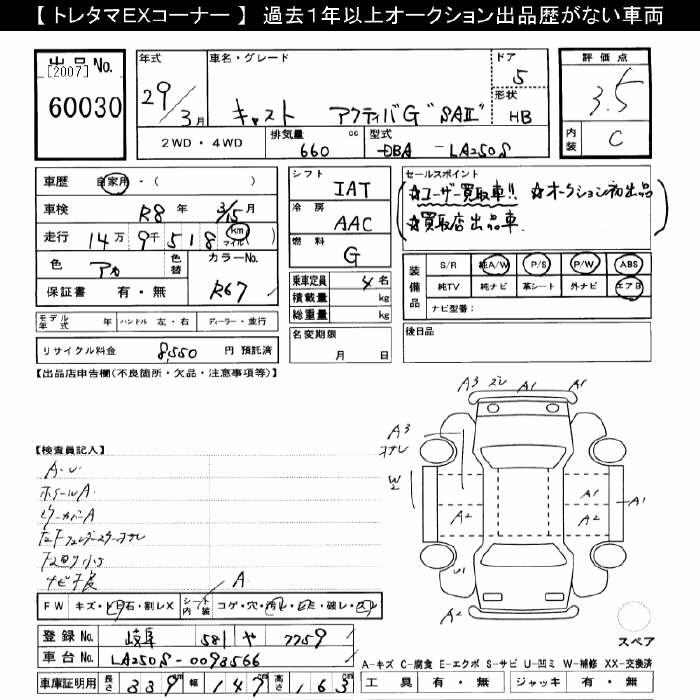 【 トレタマEXコーナー 】 過去1年以上オークション出品歴がない車両
出品No.
[2007]
60030
年式 車名・グレード ドア
29/3月 キャスト アクティバG "SAⅡ" 5
形状
HB
2WD ・ 4WD 排気量 cc 型式
660 DBA - LA250S
評価点
3.5
内装 C
車歴 自家用・( )
車検 R8 年 3/15 月
走行 14万 9千 518 km マイル( )
色 アカ 色替 カラーNo.
保証書 有・無 R67
モデル年式 年 ハンドル 左・右 ディーラー・並行
リサイクル料金 8,550 円 預託済
シフト IAT
冷房 AAC
燃料 G
乗車定員 4 名
積載量 kg
総重量 kg
名変期限
月 日
セールスポイント
☆ユーザー買取車!! ☆オークション初出品
☆買取店出品車
装備品 S/R 純A/W P/S P/W ABS
純TV 純ナビ 革シート 外ナビ エアB
ナビ型番:
後日品
【出品店申告欄(不良箇所・欠品・注意事項等)】
A3 ズレ A1 A1
A3
W2
A2
A1 A1
A2
U1
A2
スペア
【検査員記入】
A・U
ホイールA
A
FW キズ・ヒビ石・割レX シート内装 コゲ・穴・汚レ・破レ・スレ
登録No. 岐阜 581 や 7759
車台No. LA250S-0093566
車庫証明用 長さ 339 幅 147 高さ 163
A-キズ C-腐食 E-エクボ S-サビ U-凹ミ W-補修 XX-交換済
工具 有・無 ジャッキ 有・無